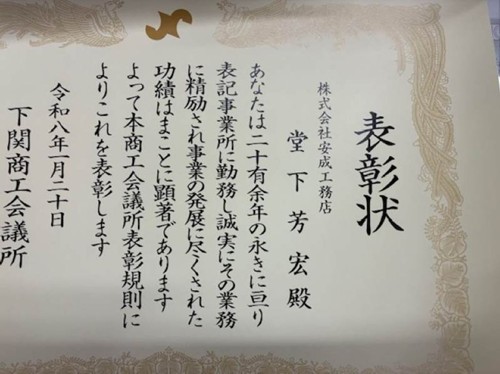 表彰状
株式会社安成工務店
堂下芳宏殿
あなたは二十有余年の永きに亘り
表記事業所に勤務し誠実にその業務
に精励され事業の発展に尽くされた
功績はまことに顕著であります
よって本商工会議所表彰規則に
よりこれを表彰します
令和八年一月二十日
下関商工会議所